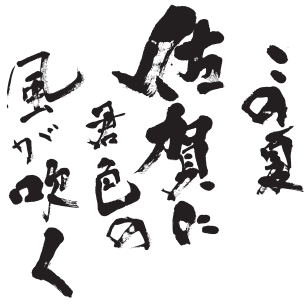 この夏
佐賀に
君色の
風が吹く